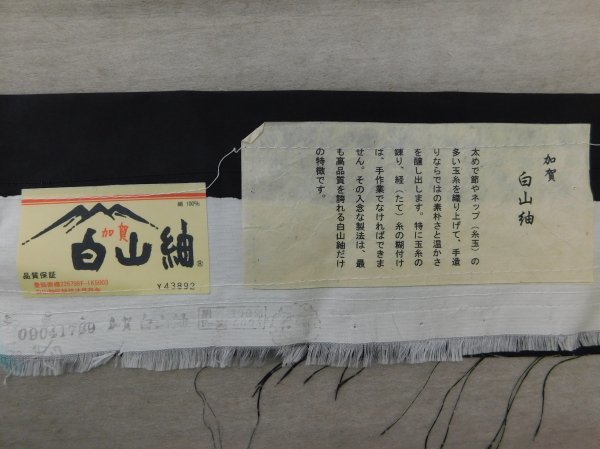 加賀
白山紬
太めで節やネップ（糸玉）の
多い玉糸を織り上げて、手造
りならではの素朴さと温かさ
を醸し出します。特に玉糸の
練り、経（たて）糸の糊付け
は、手作業でなければできま
せん。その入念な製法は、最
も高品質を誇れる白山紬だけ
の特徴です。
絹 100%
加賀
白山紬®
品質保証
Y43892